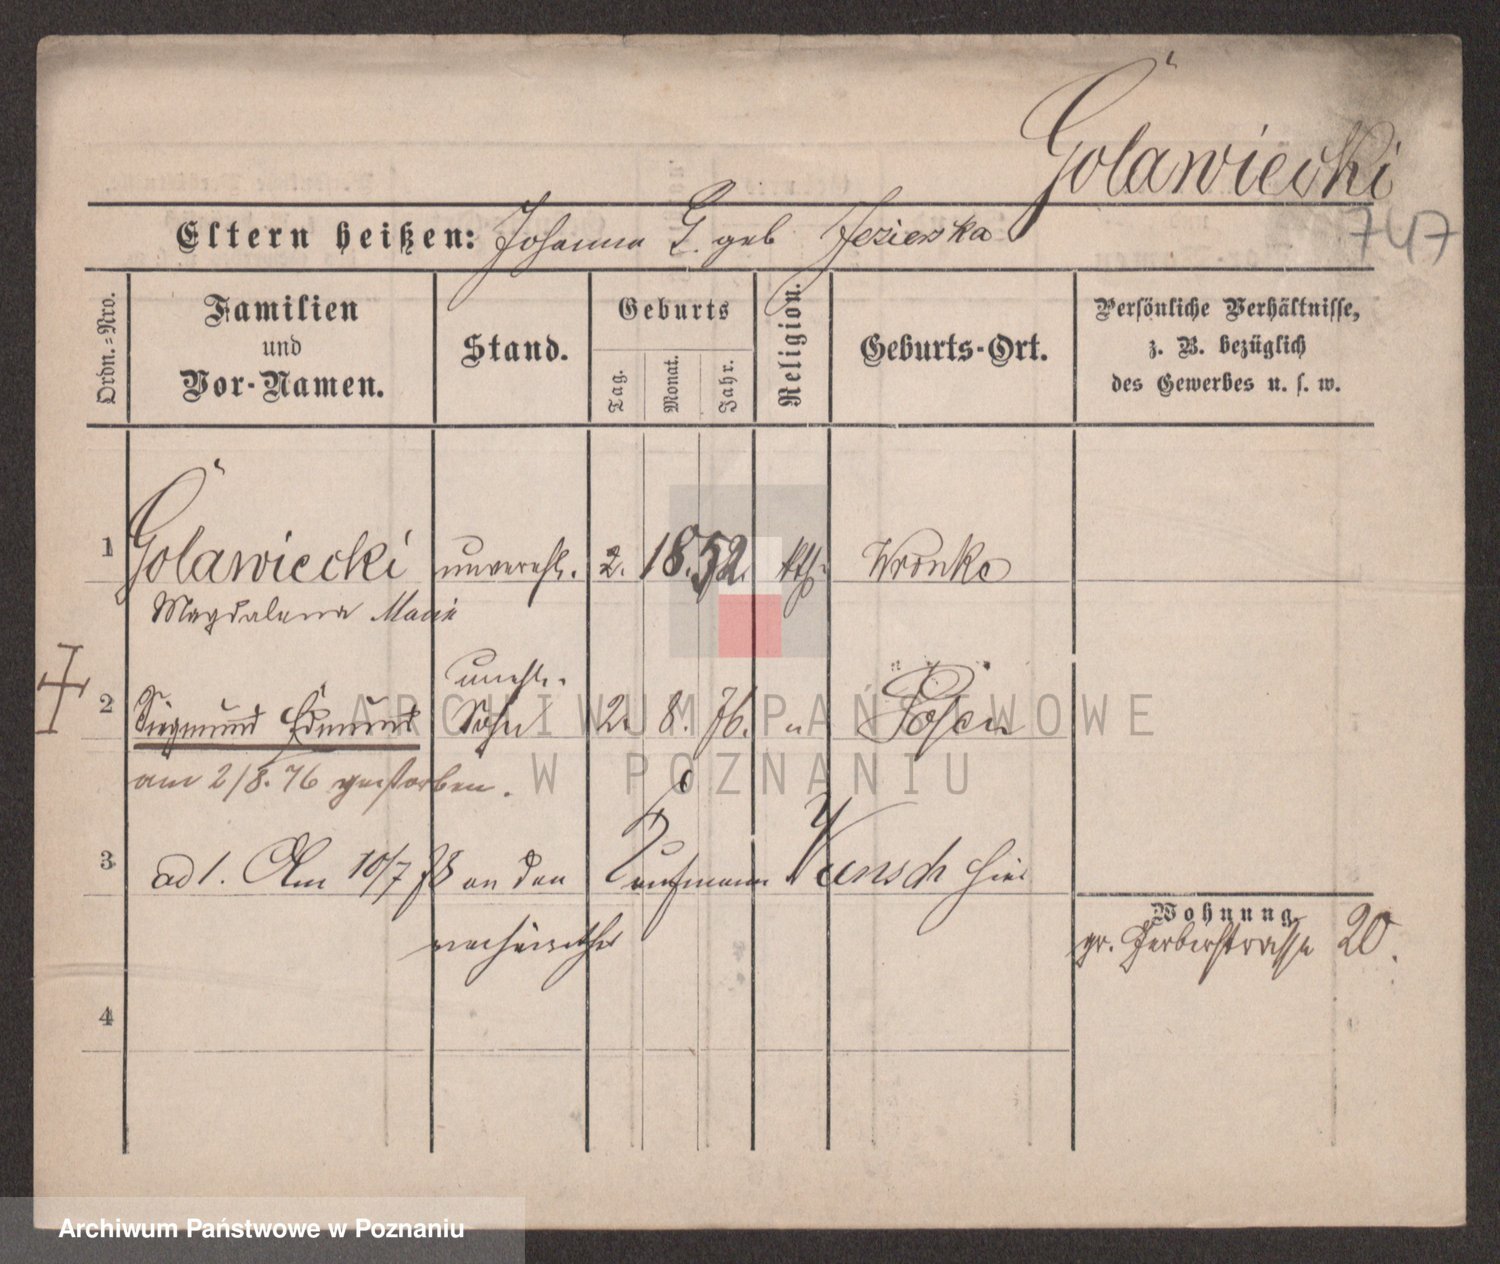 Golawiecki
747
Eltern heißen: Johanna G. geb Jezierska
Ordn.=Nro.
Familien
und
Vor-Namen.
Stand.
Geburts
Tag.
Monat.
Jahr.
Religion.
Geburts-Ort.
Persönliche Verhältnisse,
z. B. bezüglich
des Gewerbes u. s. w.
1 Golawiecki unverehl. 2. 18.52. kth. Wronke
Magdalena Marie
unehl.
2 Siegmund Edmund Sohn 2. 8. 76. " Posen
am 2/8. 76 gestorben.
3 ad 1. Am 10/7 78 an den Kaufmann Wunsch hier
verheirathet
Wohnung
gr. Gerberstrasse 20.
4
ARCHIWUM PAŃSTWOWE
W POZNANIU
Archiwum Państwowe w Poznaniu